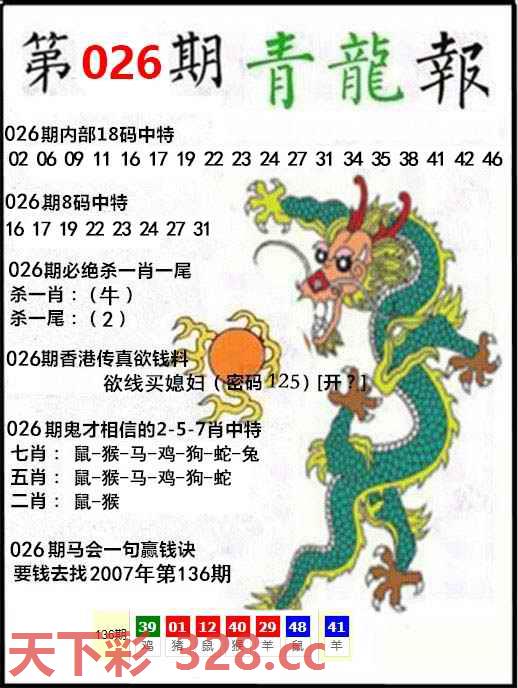 第026期青龍報
026期内部18码中特
02 06 09 11 16 17 19 22 23 24 27 31 34 35 38 41 42 46
026期8码中特
16 17 19 22 23 24 27 31
026期必绝杀一肖一尾
杀一肖：（牛）
杀一尾：（2）
026期香港传真欲钱料
欲线买媳妇（密码125）[开？]
026期鬼才相信的2-5-7肖中特
七肖：鼠-猴-马-鸡-狗-蛇-兔
五肖：鼠-猴-马-鸡-狗-蛇
二肖：鼠-猴
026期马会一句赢钱诀
要钱去找2007年第136期
136期 39 01 12 40 29 48 41
鸡 猪 鼠 猴 羊 鼠 羊
天下彩 328.cc